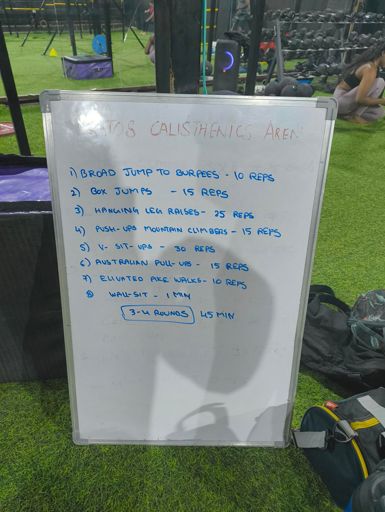 CALISTHENICS AREN
1) BROAD JUMP TO BURPEES - 10 REPS
2) BOX JUMPS - 15 REPS
3) HANGING LEG RAISES - 25 REPS
4) PUSH-UPS MOUNTAIN CLIMBERS - 15 REPS
5) V-SIT-UPS - 30 REPS
6) AUSTRALIAN PULL-UPS - 15 REPS
7) ELIVATED PIKE WALKS - 10 REPS
8) WALL-SIT - 1 MIN
3-4 ROUNDS 45 MIN